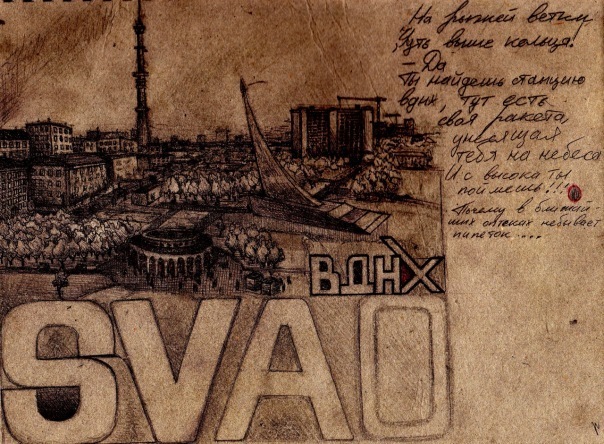 На рыжей ветки
Чуть выше кольца.
– Да
Ты найдешь станцию
вднх, тут есть
своя ракета,
уносящая
тебя на небеса
И с высока ты
поймешь!!!
Почему в ближай-
ших аптеках небывает
пипеток....
ВДНХ
SVAO